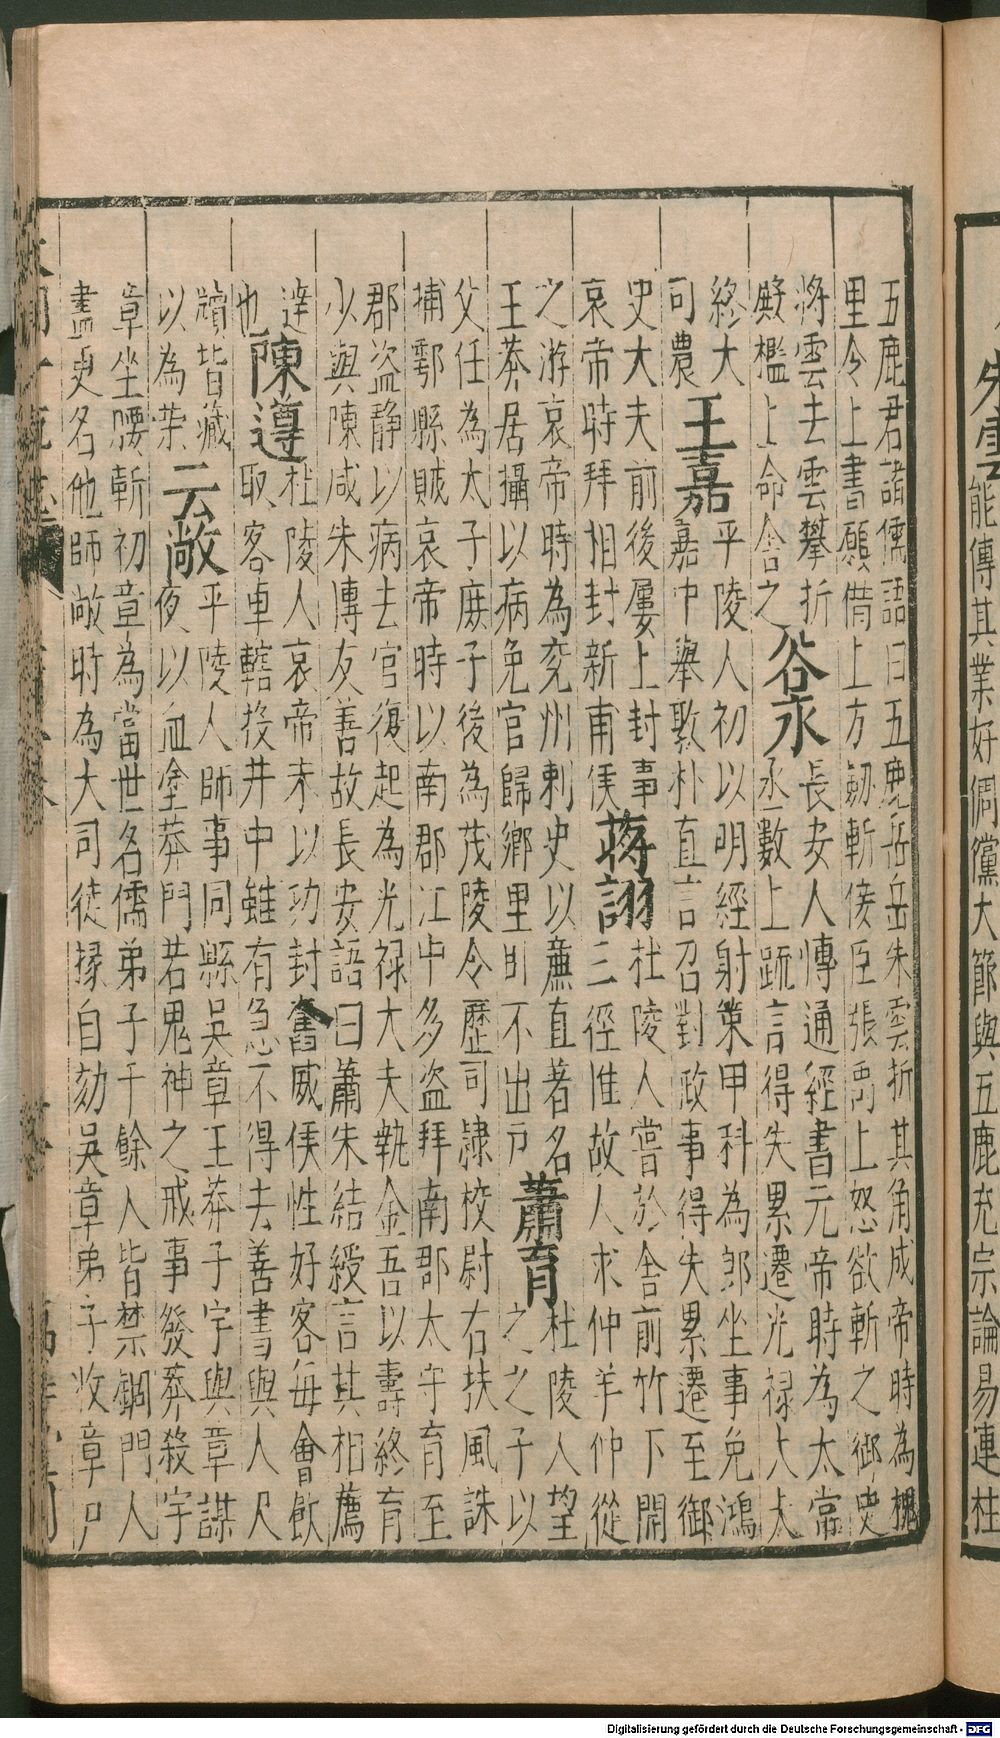 朱雲
能傳其業好倜儻大節與五鹿充宗論易連柱
五鹿君諸儒語曰五鹿岳岳朱雲折其角成帝時為槐
里令上書願借上方劒斬佞臣張禹上怒欲斬之御史
將雲去雲攀折
殿檻上命舍之
谷永
長安人慱通經書元帝時為太常
丞數上䟽言得失累遷光禄大夫
終大
司農
王嘉
平陵人初以明經射策甲科為郎坐事免鴻
嘉中舉敦朴直言召對政事得失累遷至御
史大夫前後屢上封事
哀帝時拜相封新甫侯
蔣詡
杜陵人嘗於舍前竹下開
三徑惟故人求仲羊仲從
之游哀帝時為兖州刺史以亷直著名
王莽居攝以病免官歸鄉里卧不出戶
蕭育
杜陵人望
之之子以
父任為太子庻子後為茂陵令歷司隷校尉右扶風誅
捕鄠縣賊哀帝時以南郡江中多盗拜南郡太守育至
郡盗静以病去官復起為光禄大夫執金吾以壽終育
少與陳咸朱博友善故長安語曰蕭朱結綬言其相薦
達
也
陳遵
杜陵人哀帝末以功封奮威侯性好客每會飲
取客車轄投井中雖有急不得去善書與人尺
牘皆藏
以為荣
云敞
平陵人師事同縣吳章王莽子宇與章謀
夜以血塗莽門若鬼神之戒事發莽殺宇
章坐腰斬初章為當世名儒弟子千餘人皆禁錮門人
盡更名他師敞時為大司徒掾自劾吳章弟子收章尸
Digitalisierung gefördert durch die Deutsche Forschungsgemeinschaft - DFG